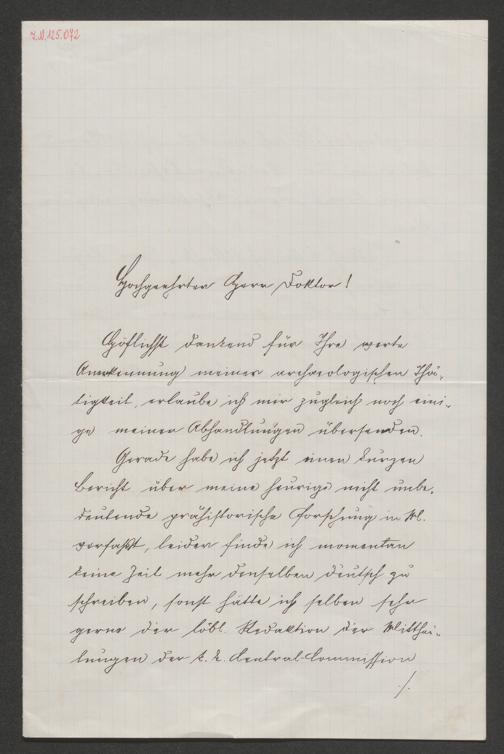 I.N. 125.072
Hochgeehrter Herr Doktor!
Höflichst dankend für Ihre werte
Anerkennung meiner archaeologischen Thä-
tigkeit, erlaube ich mir zugleich noch eini-
ge meiner Abhandlungen übersenden.
Gerade habe ich jetzt einen kurzen
Bericht über meine heurige nicht unbe-
deutende prähistorische Forschung in M.
verfaßt, leider finde ich momentan
keine Zeit mehr denselben deutsch zu
schreiben, sonst hätte ich selben sehr
gerne der löbl. Redaktion der Mitthei-
lungen der k. k. Central-Commission
./.